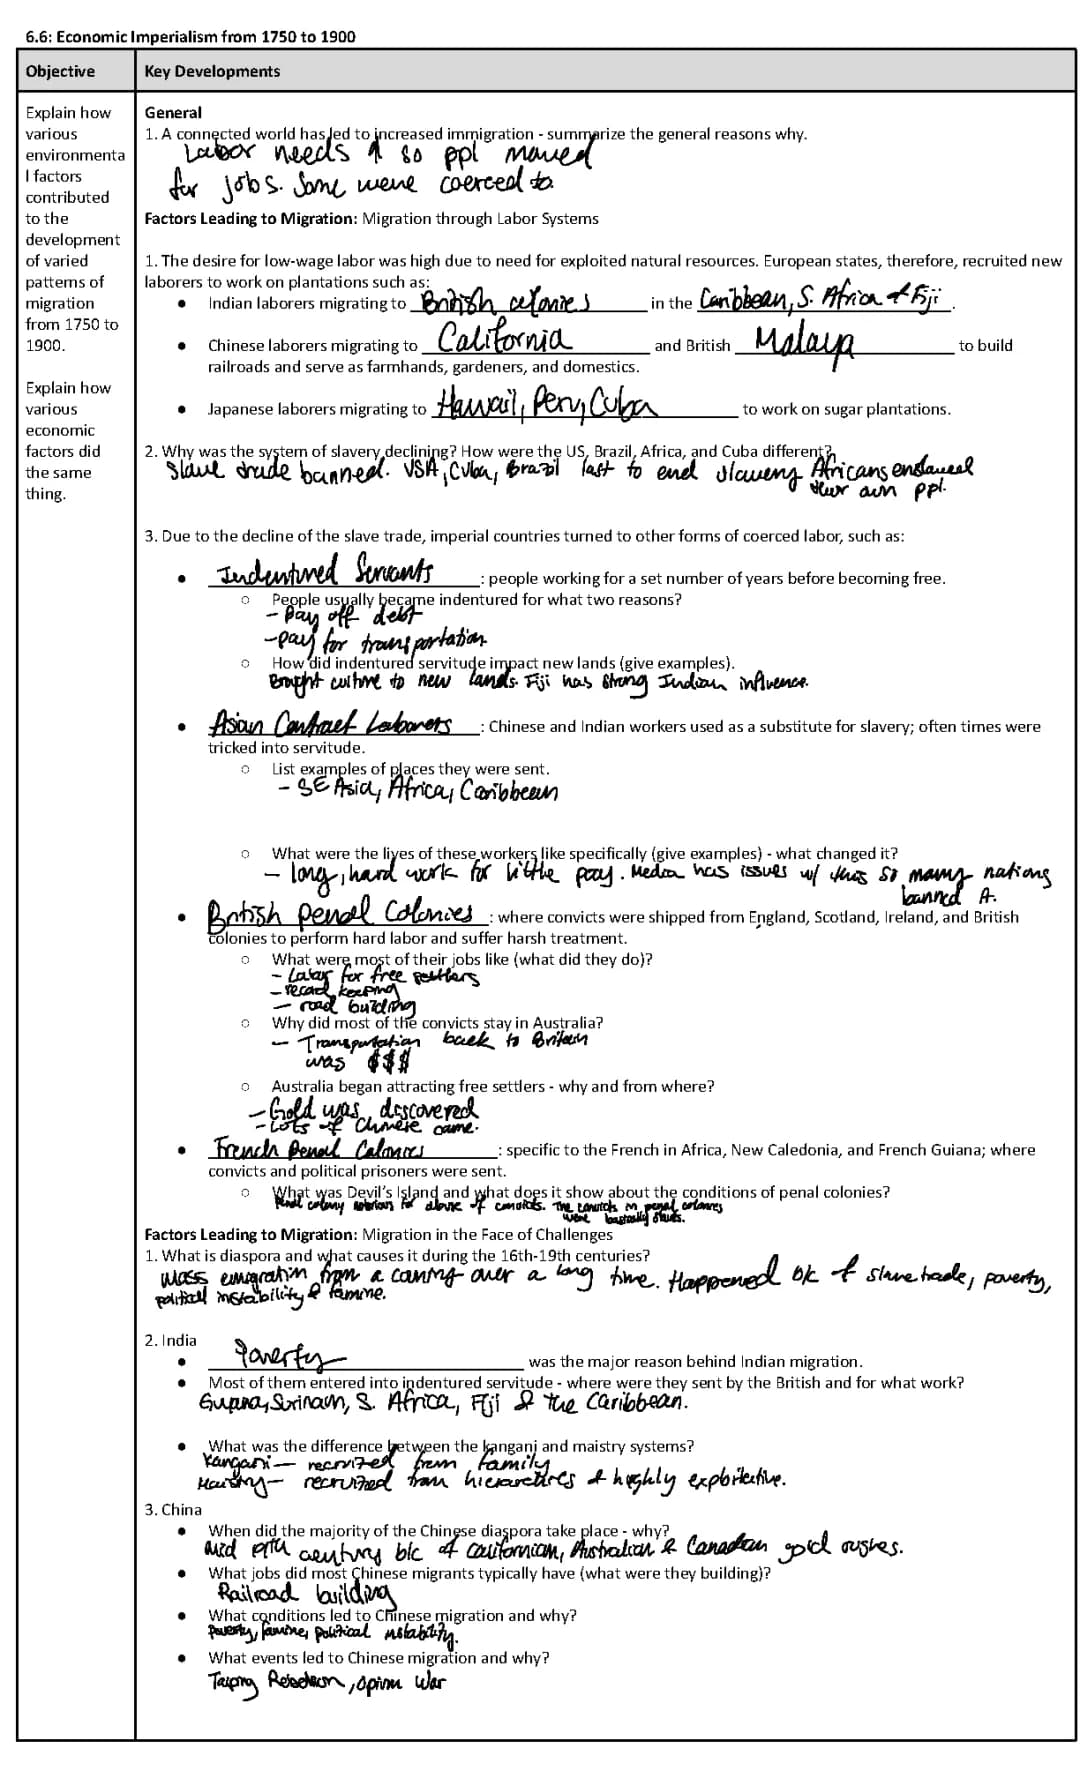 6.6: Economic Imperialism from 1750 to 1900
Objective
Key Developments
Explain how
various
environmenta
l factors
contributed
to the
development
of varied
patterns of
migration
from 1750 to
1900.
Explain how
various
economic
factors did
the same
thing.
General
1. A connected world has led to increased immigration - summarize the general reasons why.
Labor needs ↑ so ppl moved
for jobs. Some were coerced to
Factors Leading to Migration: Migration through Labor Systems
1. The desire for low-wage labor was high due to need for exploited natural resources. European states, therefore, recruited new
laborers to work on plantations such as:
● Indian laborers migrating to British colonies in the Caribbean, S. Africa & Fiji.
● Chinese laborers migrating to California and British Malaya to build
railroads and serve as farmhands, gardeners, and domestics.
● Japanese laborers migrating to Hawaii, Peru, Cuba to work on sugar plantations.
2. Why was the system of slavery declining? How were the US, Brazil, Africa, and Cuba different?
Slave trade banned. USA, Cuba, Brazil last to end slavery Africans enslaved
their own ppl.
3. Due to the decline of the slave trade, imperial countries turned to other forms of coerced labor, such as:
● Indentured Servants : people working for a set number of years before becoming free.
○ People usually became indentured for what two reasons?
- Pay off debt
- pay for transportation
○ How did indentured servitude impact new lands (give examples).
Brought culture to new lands. Fiji has strong Indian influence.
● Asian Contract Laborers : Chinese and Indian workers used as a substitute for slavery; often times were
tricked into servitude.
○ List examples of places they were sent.
- SE Asia, Africa, Caribbean
○ What were the lives of these workers like specifically (give examples) - what changed it?
- long, hard work for little pay. Media has issues w/ this so many nations
banned it.
● British Penal Colonies : where convicts were shipped from England, Scotland, Ireland, and British
colonies to perform hard labor and suffer harsh treatment.
○ What were most of their jobs like (what did they do)?
- Labor for free settlers
- record keeping
- road building
○ Why did most of the convicts stay in Australia?
- Transportation back to Britain
was $$$
○ Australia began attracting free settlers - why and from where?
- Gold was discovered
- Lots of Chinese came.
● French Penal Colonies : specific to the French in Africa, New Caledonia, and French Guiana; where
convicts and political prisoners were sent.
○ What was Devil's Island and what does it show about the conditions of penal colonies?
Penal colony notorious for abuse of convicts. The convicts in penal colonies
were basically slaves.
Factors Leading to Migration: Migration in the Face of Challenges
1. What is diaspora and what causes it during the 16th-19th centuries?
Mass emigration from a country over a long time. Happened bk of slave trade, poverty,
political instability & famine.
2. India
● Poverty was the major reason behind Indian migration.
● Most of them entered into indentured servitude - where were they sent by the British and for what work?
Guyana, Surinam, S. Africa, Fiji & the Caribbean.
● What was the difference between the kangani and maistry systems?
Kangani - recruited from family
Maistry - recruited from hierarchies & highly exploitative.
3. China
● When did the majority of the Chinese diaspora take place - why?
Mid 19th century b/c of californian, Australian & Canadian gold rushes.
● What jobs did most Chinese migrants typically have (what were they building)?
Railroad building
● What conditions led to Chinese migration and why?
Poverty, famine, political instability.
● What events led to Chinese migration and why?
Taiping Rebellion, Opium War